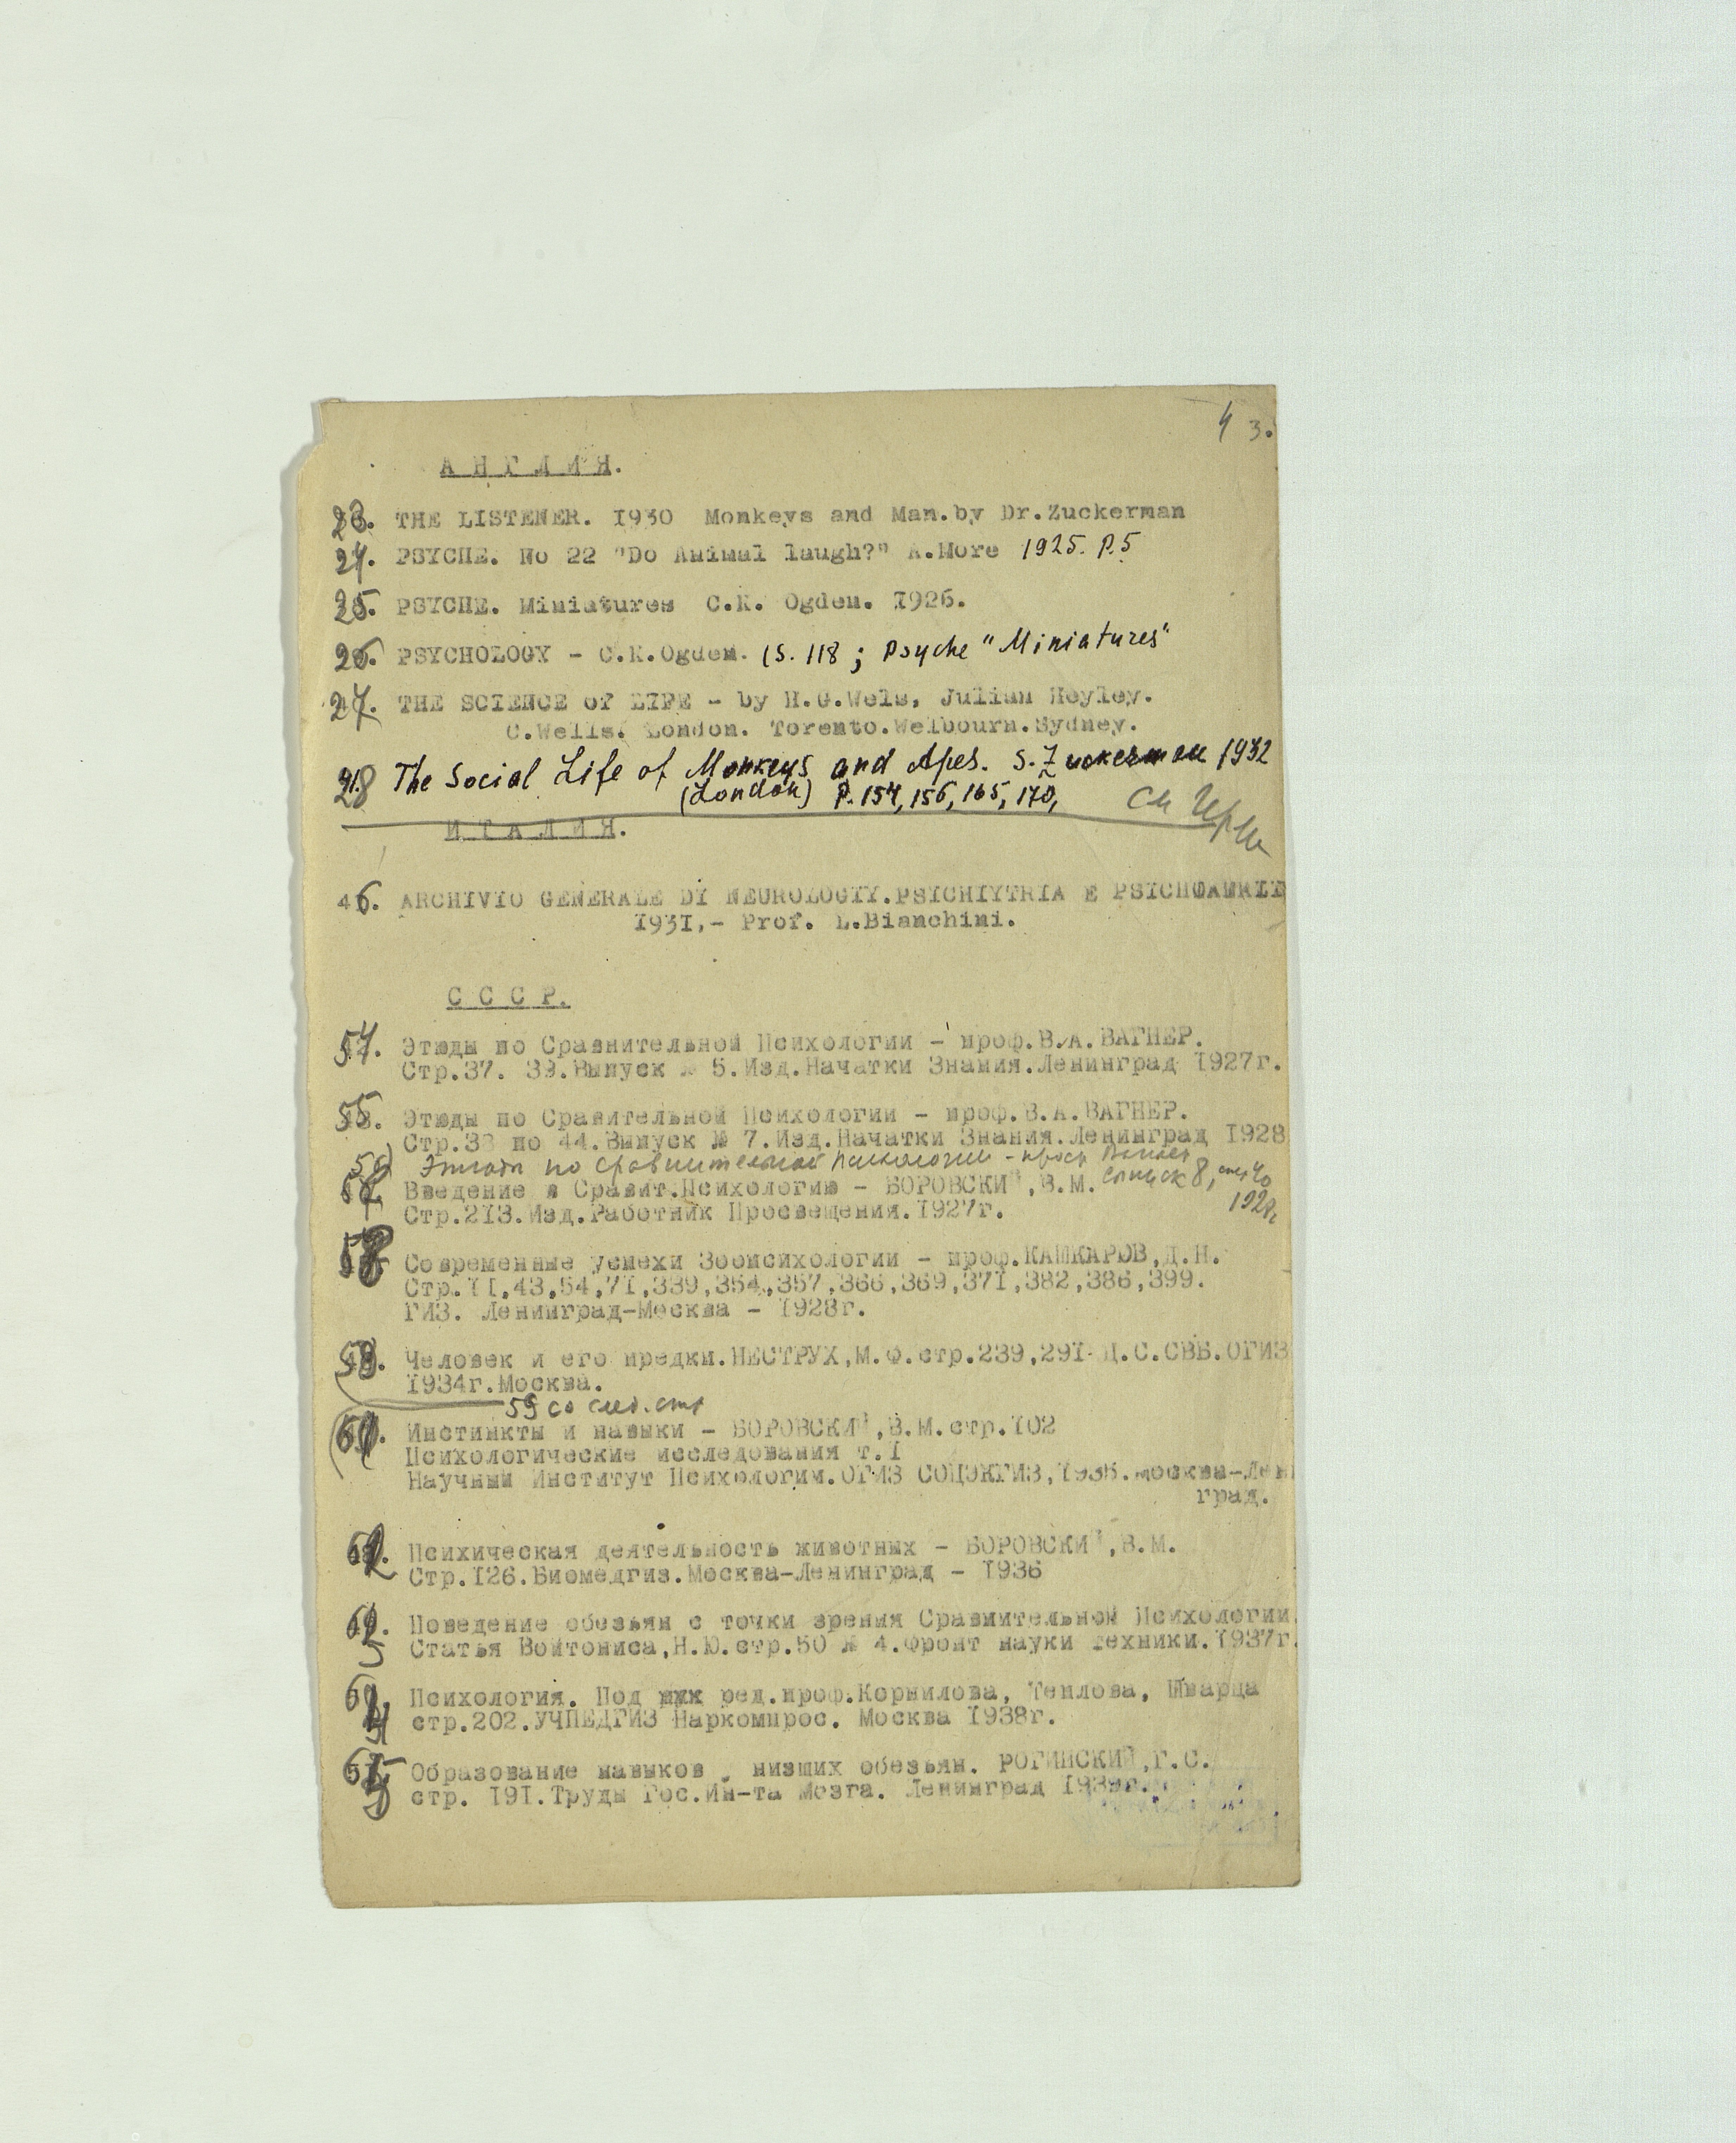 4 3.
А Н Г Л И Я.
23. THE LISTENER. I930 Monkeys and Man.by Dr.Zuckerman
24. PSYCHE. No 22 "Do Animal laugh?" A.More 1925. P.5
25. PSYCHE. Miniatures C.K. Ogden. I926.
26. PSYCHOLOGY - C.K.Ogden. (S. 118 ; Psyche "Miniatures"
27. THE SCIENCE of LIFE - by H.G.Wels, Julian Heyley.
C.Wells. London. Torento.Welbourn.Sydney.
28 The Social Life of Monkeys and Apes. S. Zuckerman 1932
(London) P. 154, 156, 165, 170,
И Т А Л И Я.
46. ARCHIVIO GENERALE DI NEUROLOGIY.PSICHIYTRIA E
I93I,- Prof. L.Bianchini.
С С С Р.
54. Этюды по Сравнительной Психологии - проф.В.А.ВАГНЕР.
Стр.37. 39.Выпуск № 5.Изд.Начатки Знания.Ленинград I927г.
55. Этюды по Сравительной Психологии - проф.В.А.ВАГНЕР.
Стр.38 по 44.Выпуск № 7.Изд.Начатки Знания.Ленинград I928
56) Этюды по сравнительной психологии - проф Вагнер
Введение в Сравит.Психологию - БОРОВСКИЙ,В.М. 8, 1928г
Стр.2I3.Изд.Работник Просвещения.I927г.
Современные успехи Зоопсихологии - проф.КАШКАРОВ,Д.Н.
Стр.II,43,54,7I,339,354,357,366,369,37I,382,386,399.
ГИЗ. Ленинград-Москва - I928г.
Человек и его предки.НЕСТРУХ,М.Ф.стр.239,29I Ц.С.СВБ.ОГИЗ
I934г.Москва.
59 со след. стр
Инстинкты и навыки - БОРОВСКИЙ,В.М.стр.I02
Психологические исследования т.I
Научный Институт Психологии.ОГИЗ СОЦЭКГИЗ,I935.Москва-Лен
град.
62. Психическая деятельность животных - БОРОВСКИЙ,В.М.
Стр.I26.Биомедгиз.Москва-Ленинград - I936
Поведение обезьян с точки зрения Сравнительной Психологии.
Статья Войтониса,Н.Ю.стр.50 № 4.Фронт науки техники.I937г.
Психология. Под ред.проф.Корнилова, Теплова, Шварца
стр.202.УЧПЕДГИЗ Наркомпрос. Москва I938г.
Образование навыков у низших обезьян. РОГИНСКИЙ,Г.С.
стр. I9I.Труды Гос.Ин-та Мозга. Ленинград